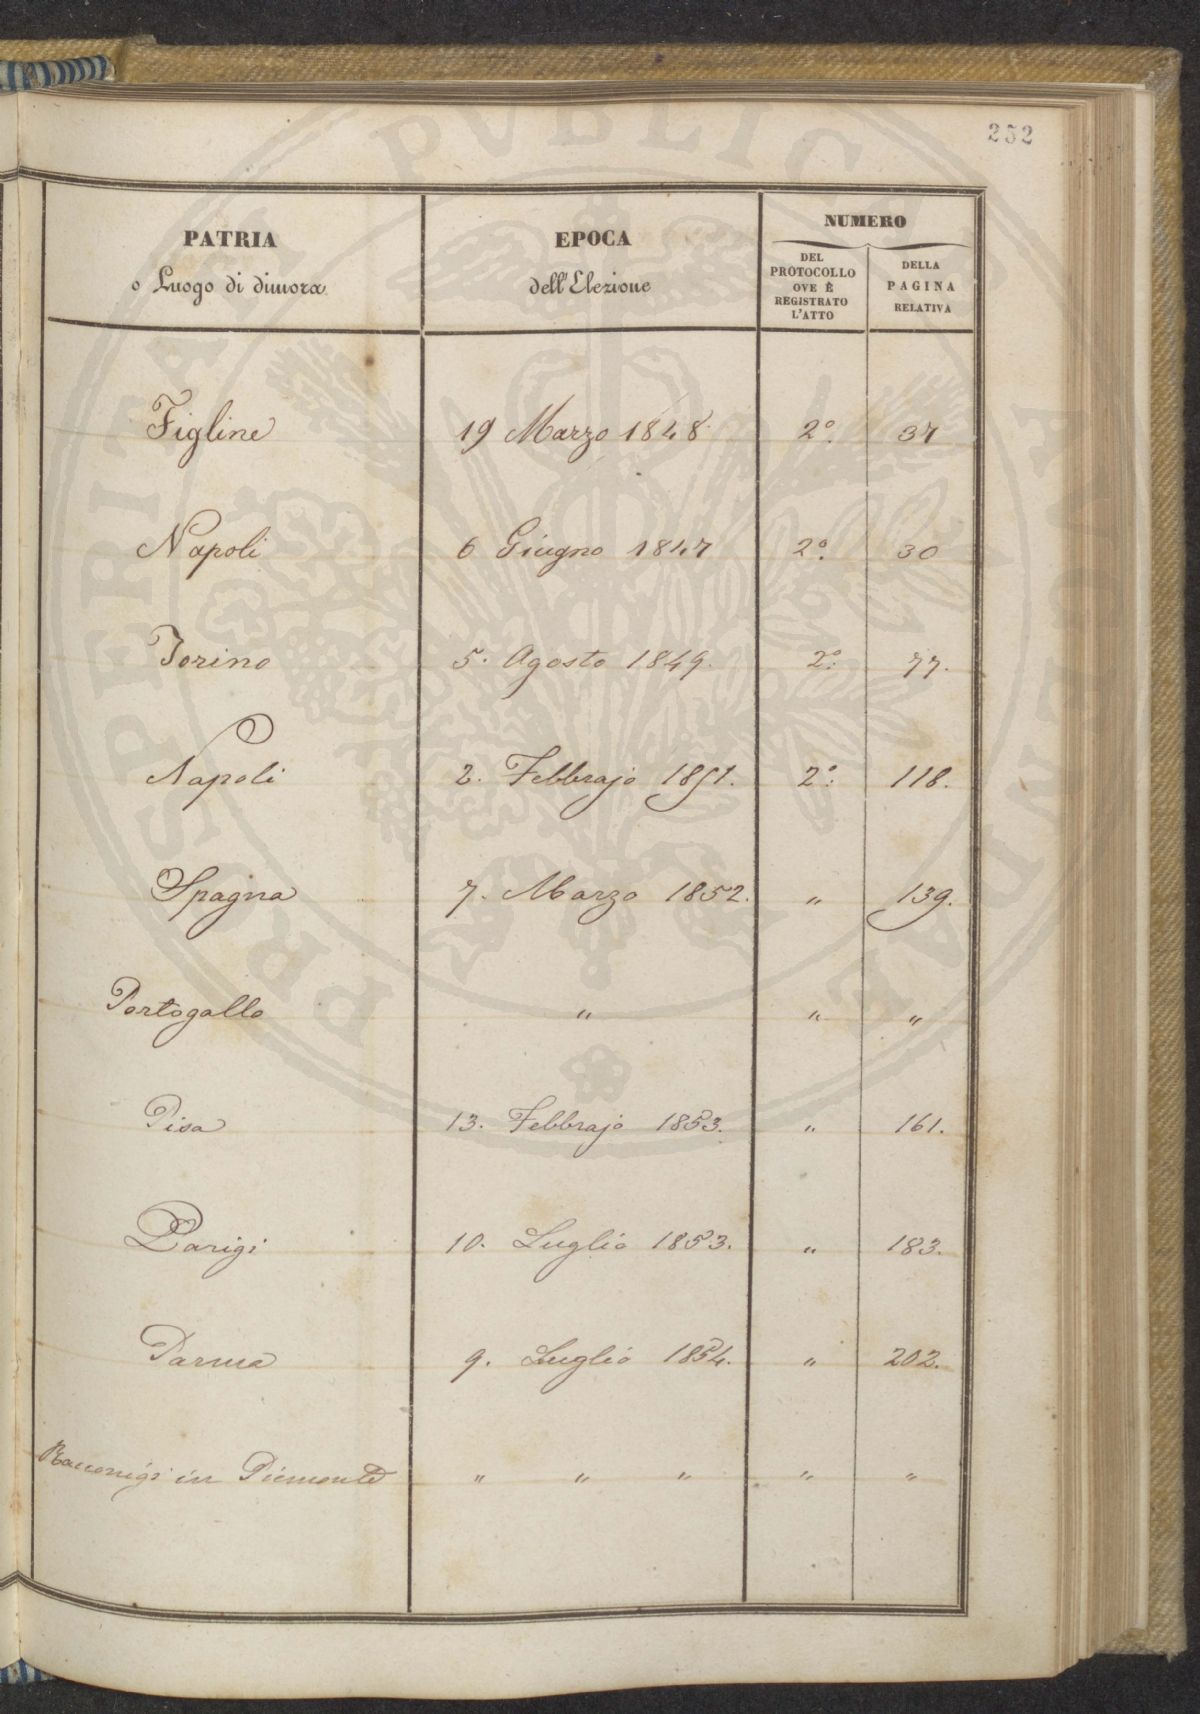 252
PATRIA
o Luogo di dimora
EPOCA
dell'Elezione
NUMERO
DEL
PROTOCOLLO
OVE È
REGISTRATO
L'ATTO
DELLA
PAGINA
RELATIVA
Figline 19 Marzo 1848 2º. 37
Napoli 6 Giugno 1847 2º. 30
Torino 5. Agosto 1849. 2º. 77.
Napoli 2. Febbrajo 1851. 2º. 118.
Spagna 7. Marzo 1852. " 139.
Portogallo " " "
Pisa 13. Febbrajo 1853. " 161.
Parigi 10. Luglio 1853. " 183.
Parma 9. Luglio 1854. " 202.
Racconigi in Piemonte " " " " "
PROSPERITATI PVBLICAE AVGENDAE